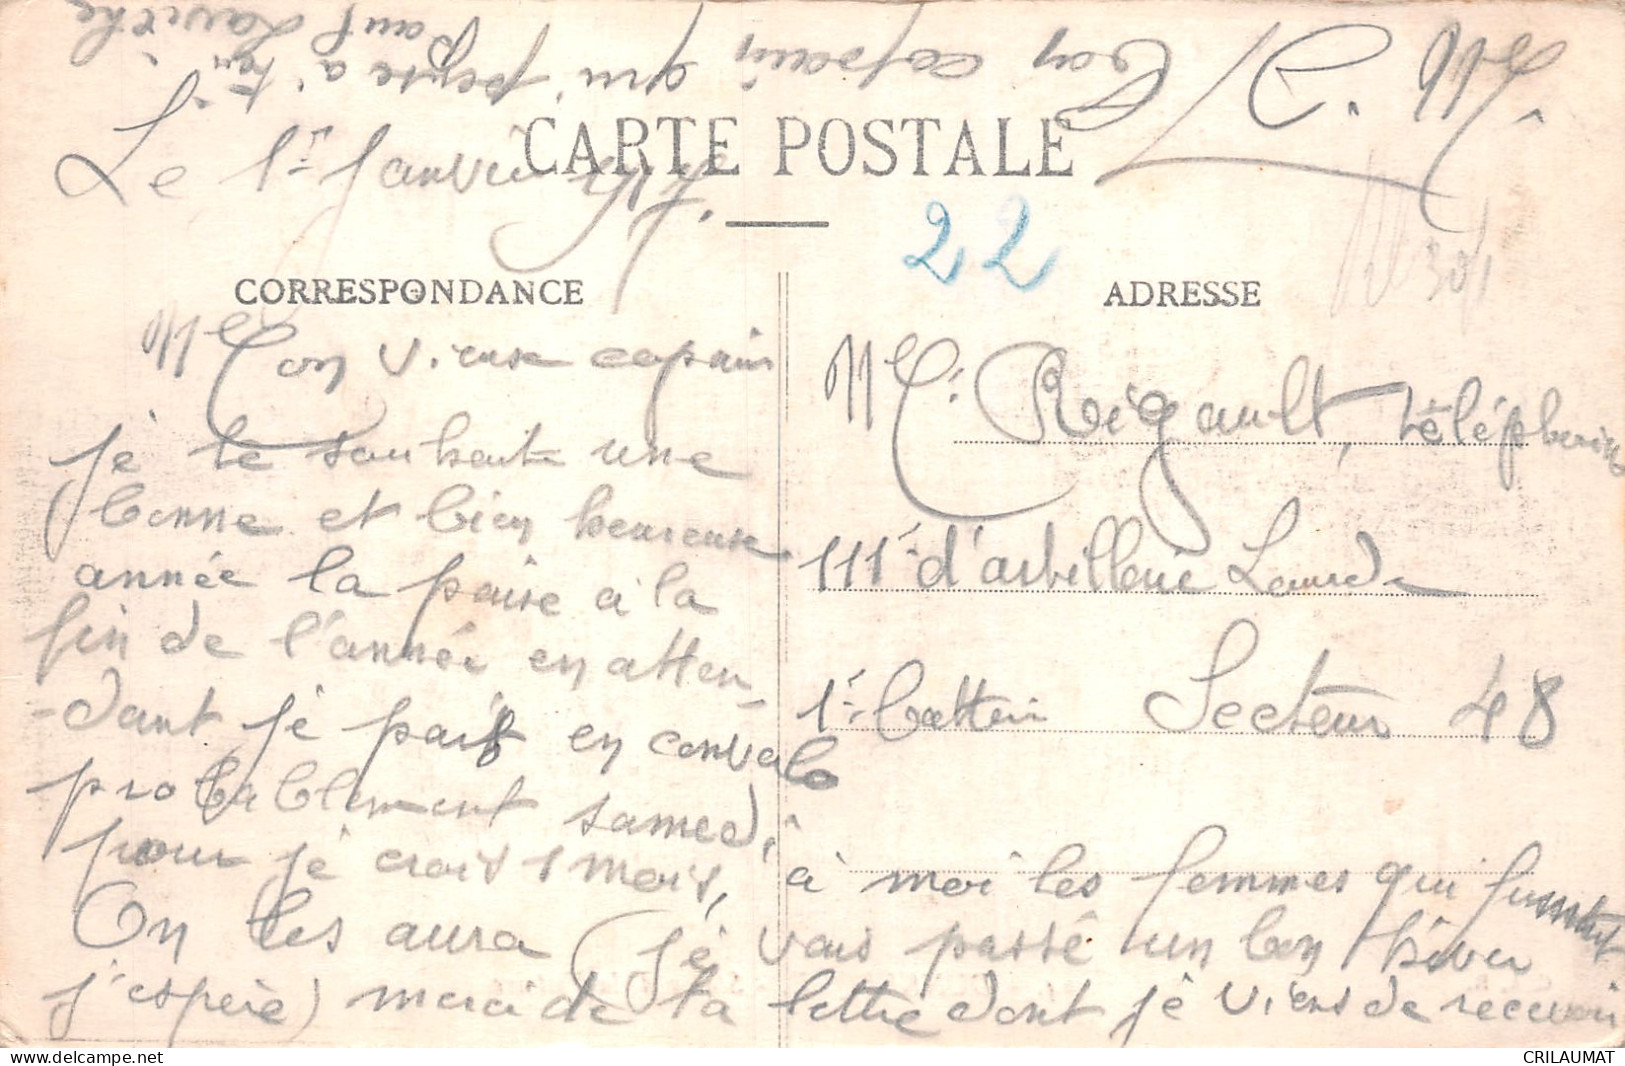 Ton copain qui pense à toi
F. M.
CARTE POSTALE
Le 1r Janvier 1917.
22
CORRESPONDANCE
ADRESSE
301
Mon vieux copain
je te souhaite une
bonne et bien heureuse
année la paix à la
fin de l'année en atten-
-dant je pars en convalo
probablement samedi
pour je crois 1 mois,
On les aura (je vais passé un bon hiver
j'espère) merci de ta lettre dont je viens de recevoir
à moi les femmes qui fument
Mr. Rigault, téléphoniste
111e d'artillerie Lourde
1e batterie Secteur 48
CRILAUMAT